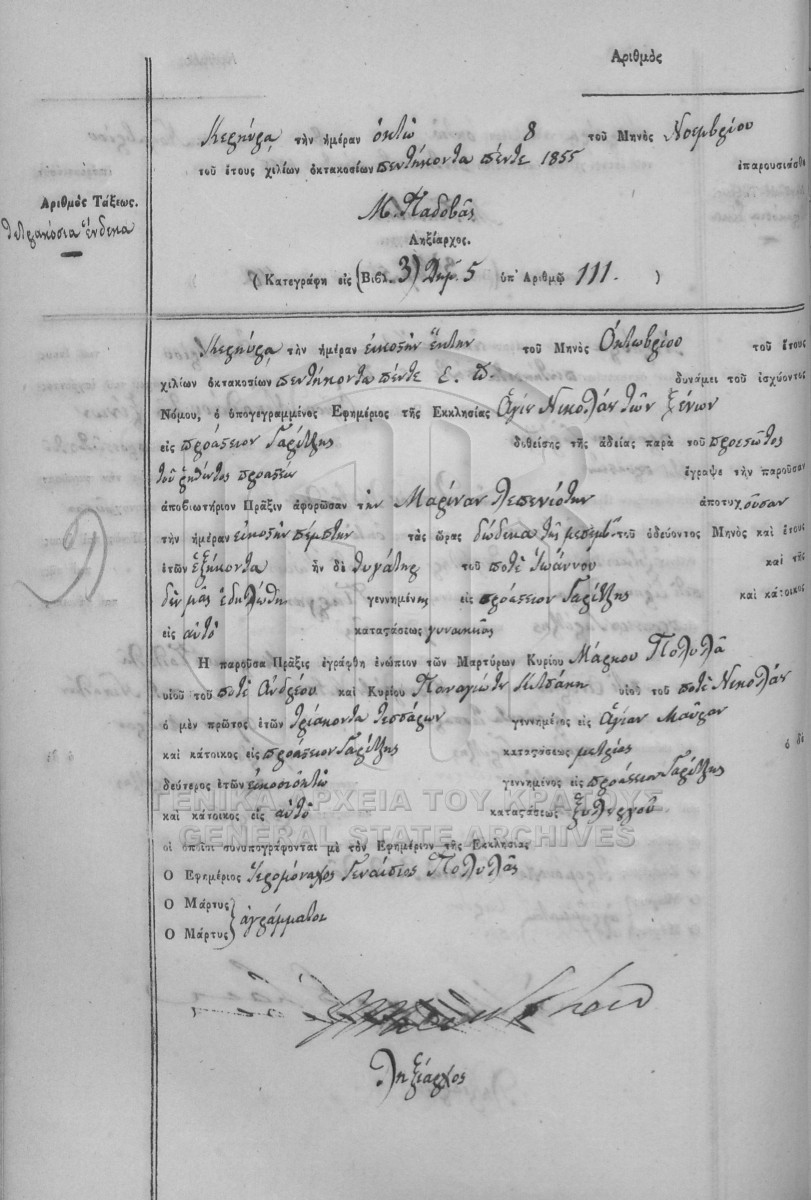 Ἀριθμὸς
Κερκύρα τὴν ἡμέραν ὀκτὼ 8 τοῦ Μηνὸς Νοεμβρίου
τοῦ ἔτους χιλίων ὀκτακοσίων πεντήκοντα πέντε 1855 ἐπαρουσιάσθη
Ἀριθμὸς Τάξεως.
τετρακόσια ἕνδεκα
Μ. Παδοβᾶς
Ληξίαρχος.
( Κατεγράφη εἰς (Βιβλ. 3) Σημ. 5 ὑπ' Ἀριθμῷ 111. )
Κερκύρα τὴν ἡμέραν εἰκοστὴν ἕκτην τοῦ Μηνὸς Ὀκτωβρίου τοῦ ἔτους
χιλίων ὀκτακοσίων πεντήκοντα πέντε Ε. Π. δυνάμει τοῦ ἰσχύοντος
Νόμου, ὁ ὑπογεγραμμένος Ἐφημέριος τῆς Ἐκκλησίας Ἁγίου Νικολάου τῶν Ξένων
εἰς προάστειον Γαρίτζης δοθείσης τῆς ἀδείας παρὰ τοῦ προεστῶτος
τοῦ ῥηθέντος προαστείου ἔγραψε τὴν παροῦσαν
ἀποβιωτήριον Πρᾶξιν ἀφορῶσαν τὴν Μαρίναν Λεπενιότην ἀποτυχοῦσαν
τὴν ἡμέραν εἰκοστὴν πέμπτην τὰς ὥρας δώδεκα τῆς μεσημβ. τοῦ ὁδεύοντος Μηνὸς καὶ ἔτους
ἐτῶν ἑξήκοντα ἦν δὲ θυγάτηρ τοῦ ποτὲ Ἰωάννου καὶ τῆς
δὲν μᾶς ἐδηλώθη γεννημένης εἰς προάστειον Γαρίτζης καὶ κάτοικος
εἰς αὐτὸ καταστάσεως γυναικὸς
Ἡ παροῦσα Πρᾶξις ἐγράφθη ἐνώπιον τῶν Μαρτύρων Κυρίου Μάρκου Πολυλᾶ
υἱοῦ τοῦ ποτὲ Ἀνδρέου καὶ Κυρίου Παναγιώτη Κιτσάκη υἱοῦ τοῦ ποτὲ Νικολάου
ὁ μὲν πρῶτος ἐτῶν τριάκοντα τεσσάρων γεννημένος εἰς Ἁγίαν Μαῦραν
καὶ κάτοικος εἰς προάστειον Γαρίτζης καταστάσεως μετρίας ὁ δὲ
δεύτερος ἐτῶν εἰκοσιοκτὼ γεννημένος εἰς προάστειον Γαρίτζης
καὶ κάτοικος εἰς αὐτὸ καταστάσεως ξυλεργοῦ
ΓΕΝΙΚΑ ΑΡΧΕΙΑ ΤΟΥ ΚΡΑΤΟΥΣ
GENERAL STATE ARCHIVES
οἱ ὁποῖοι συνυπογράφονται μὲ τὸν Ἐφημέριον τῆς Ἐκκλησίας
Ὁ Ἐφημέριος Ἱερομόναχος Γενάσιος Πολυλᾶς
Ὁ Μάρτυς
ἀγράμματοι
Ὁ Μάρτυς
Ληξίαρχος